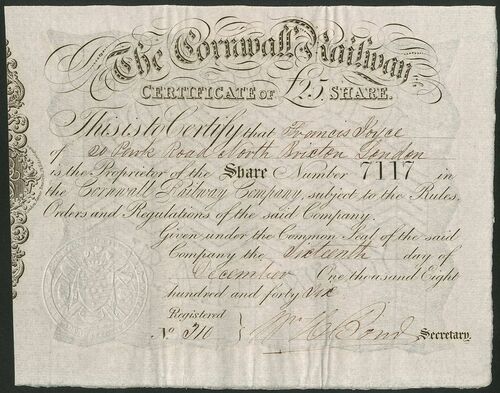 The Cornwall Railway
CERTIFICATE OF £25 SHARE.
This is to Certify that Francis Joyce
of 20 Park Road North Brixton London
is the Proprietor of the Share Number 7117 in
the Cornwall Railway Company, subject to the Rules,
Orders and Regulations of the said Company.
Given under the Common Seal of the said
Company the Sixteenth day of
December One thousand Eight
hundred and forty Six
Registered
No. 310 Wm H. Bond Secretary.